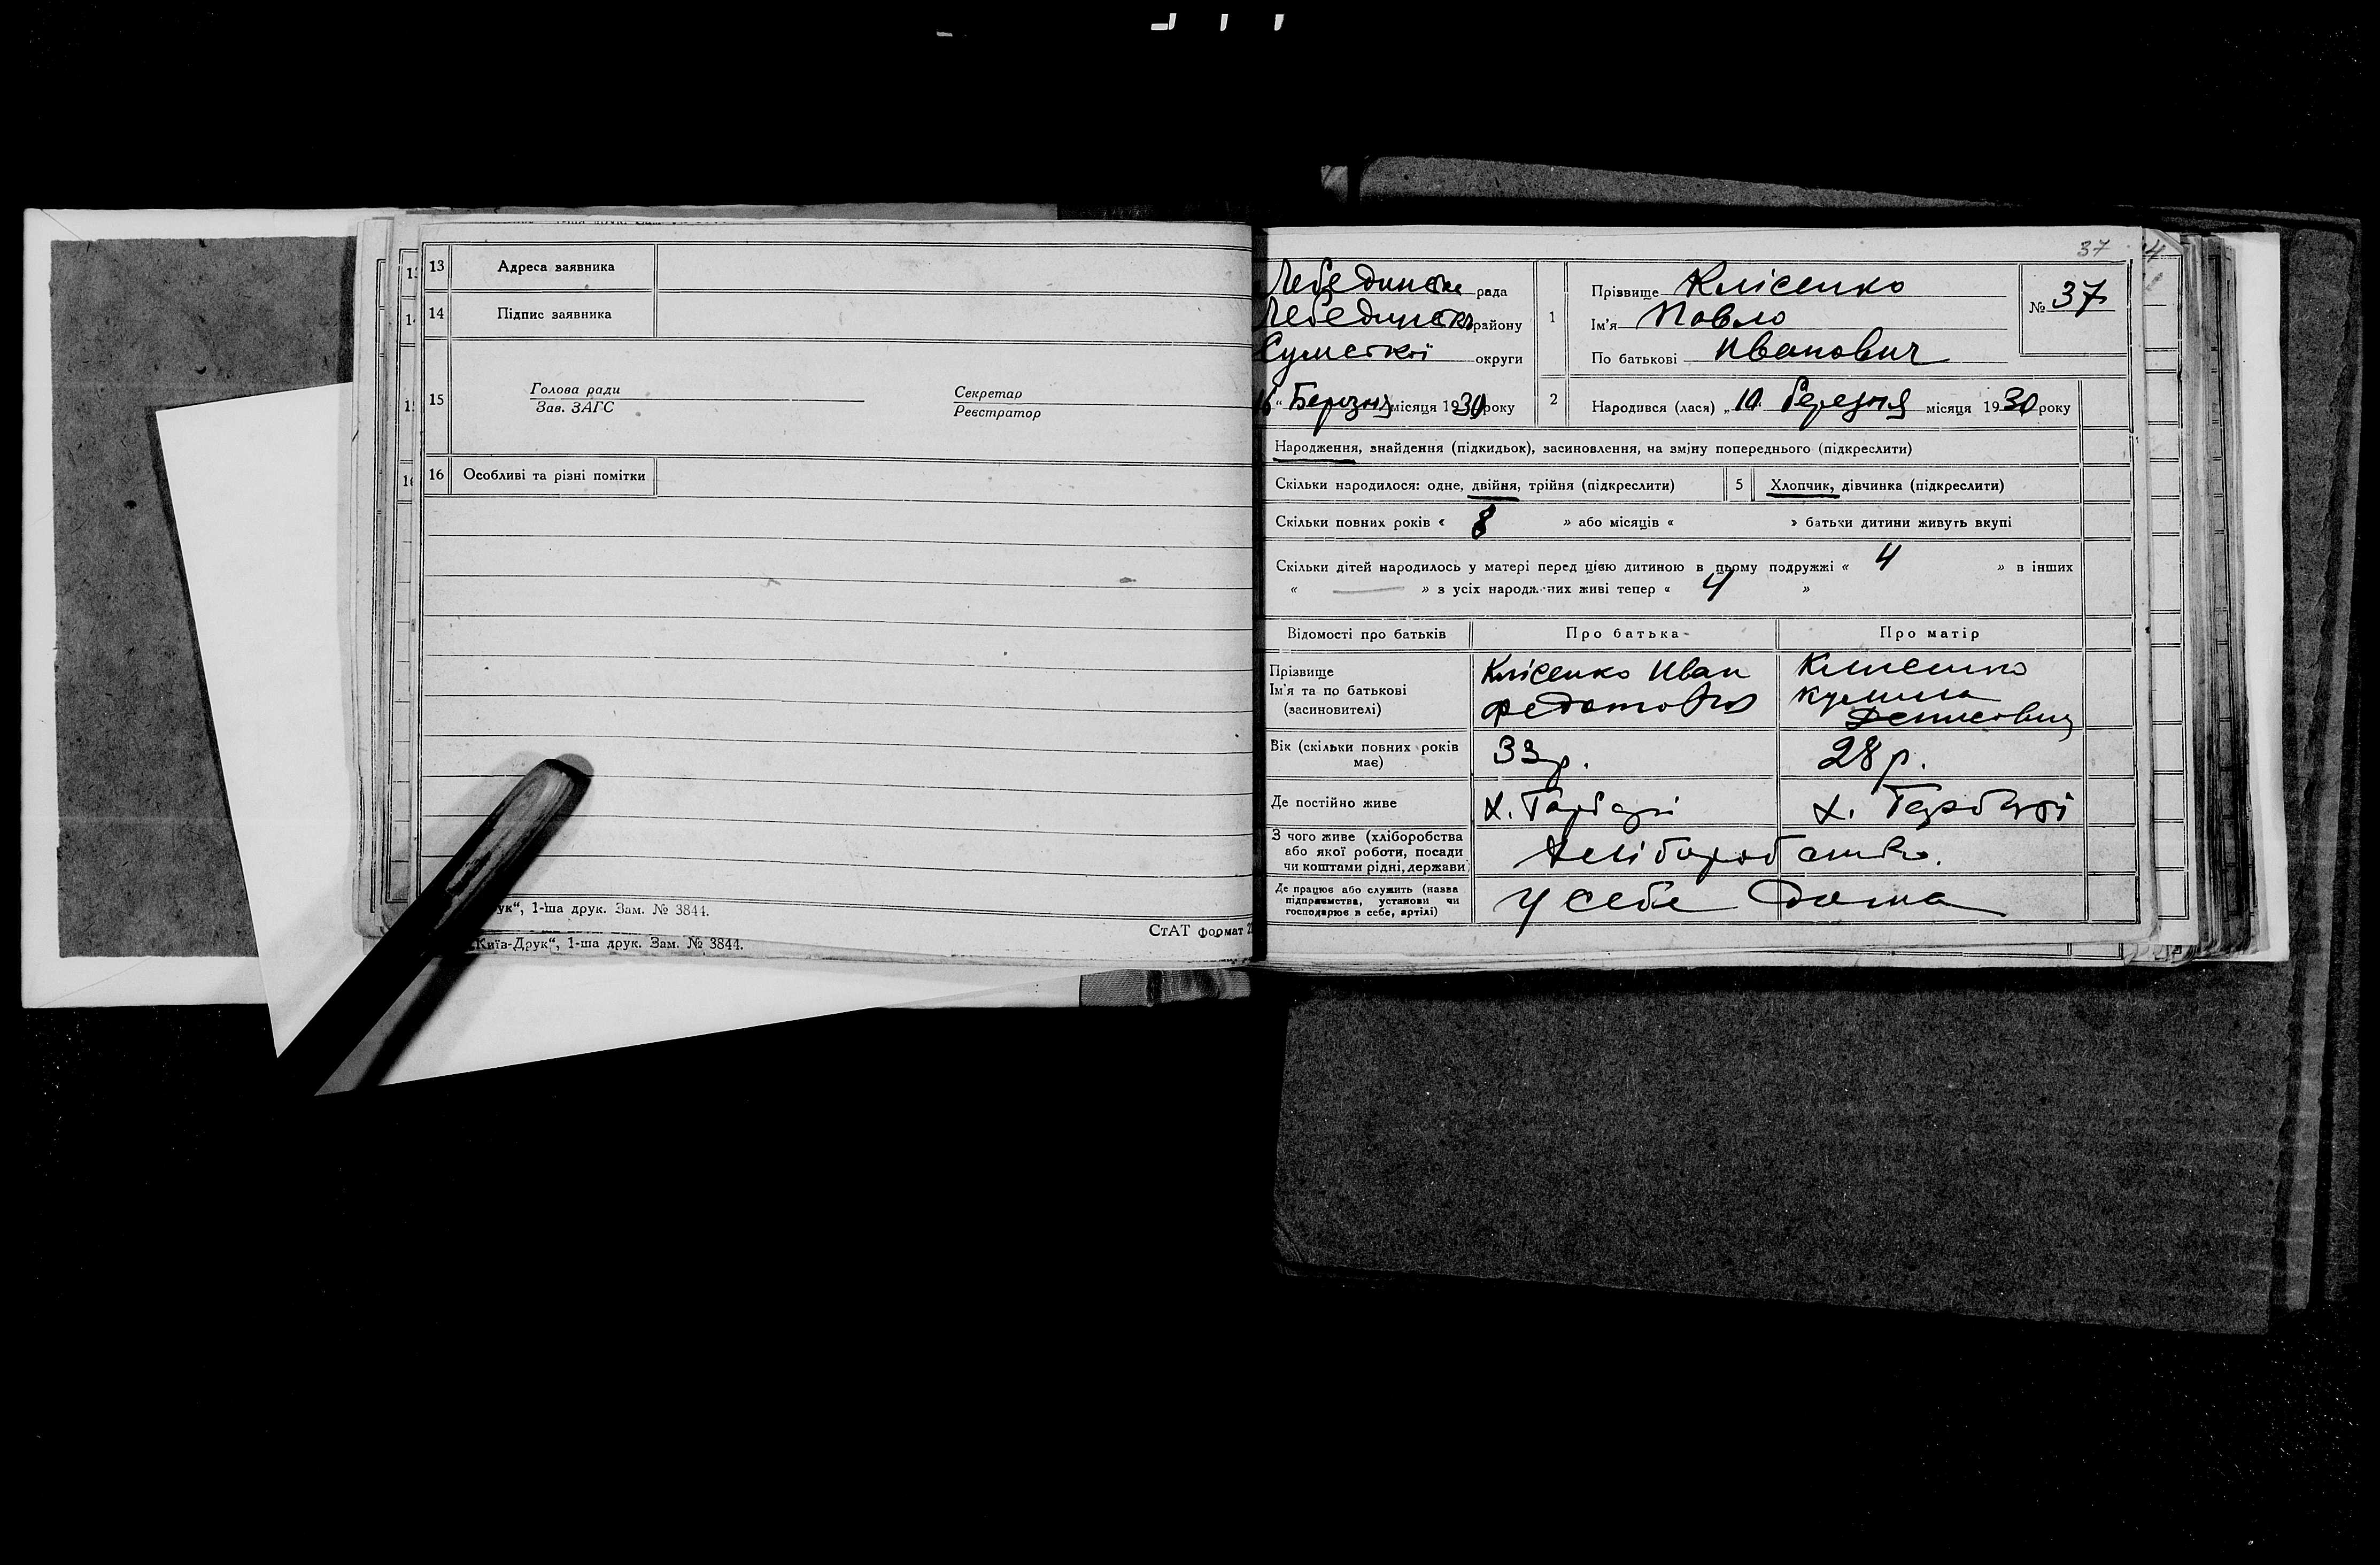 13 Адреса заявника
14 Підпис заявника
15 Голова ради
Зав. ЗАГС
Секретар
Реєстратор
16 Особливі та різні помітки
ук“, 1-ша друк. Зам. № 3844.
СтАТ формат
Київ-Друк“, 1-ша друк. Зам. № 3844.
37
Лебединська рада
Лебединсько району
Сумської округи
16 “ Березня місяця 1930 року
1 Прізвище Клісенко
Ім'я Павло
По батькові Иванович
№ 37
2 Народився (лася) „ 10 березня місяця 1930 року
Народження, знайдення (підкидьок), засиновлення, на зміну попереднього (підкреслити)
Скільки народилося: одне, двійня, трійня (підкреслити) 5 Хлопчик, дівчинка (підкреслити)
Скільки повних років « 8 » або місяців « » батьки дитини живуть вкупі
Скільки дітей народилось у матері перед цією дитиною в цьому подружжі « 4 » в інших
« — » з усіх народжених живі тепер « 4 »
Відомості про батьків Про батька Про матір
Прізвище
Ім'я та по батькові
(засиновителі)
Клісенко Иван
Федотович
Клисенко
Денисовна
Вік (скільки повних років
має)
33 р. 28 р.
Де постійно живе х. Гарбарі х. Гарбарі
З чого живе (хліборобства
або якої роботи, посади
чи коштами рідні, держави)
Хліборобство.
Де працює або служить (назва
підприємства, установи чи
господарює в себе, артілі)
У себе дома